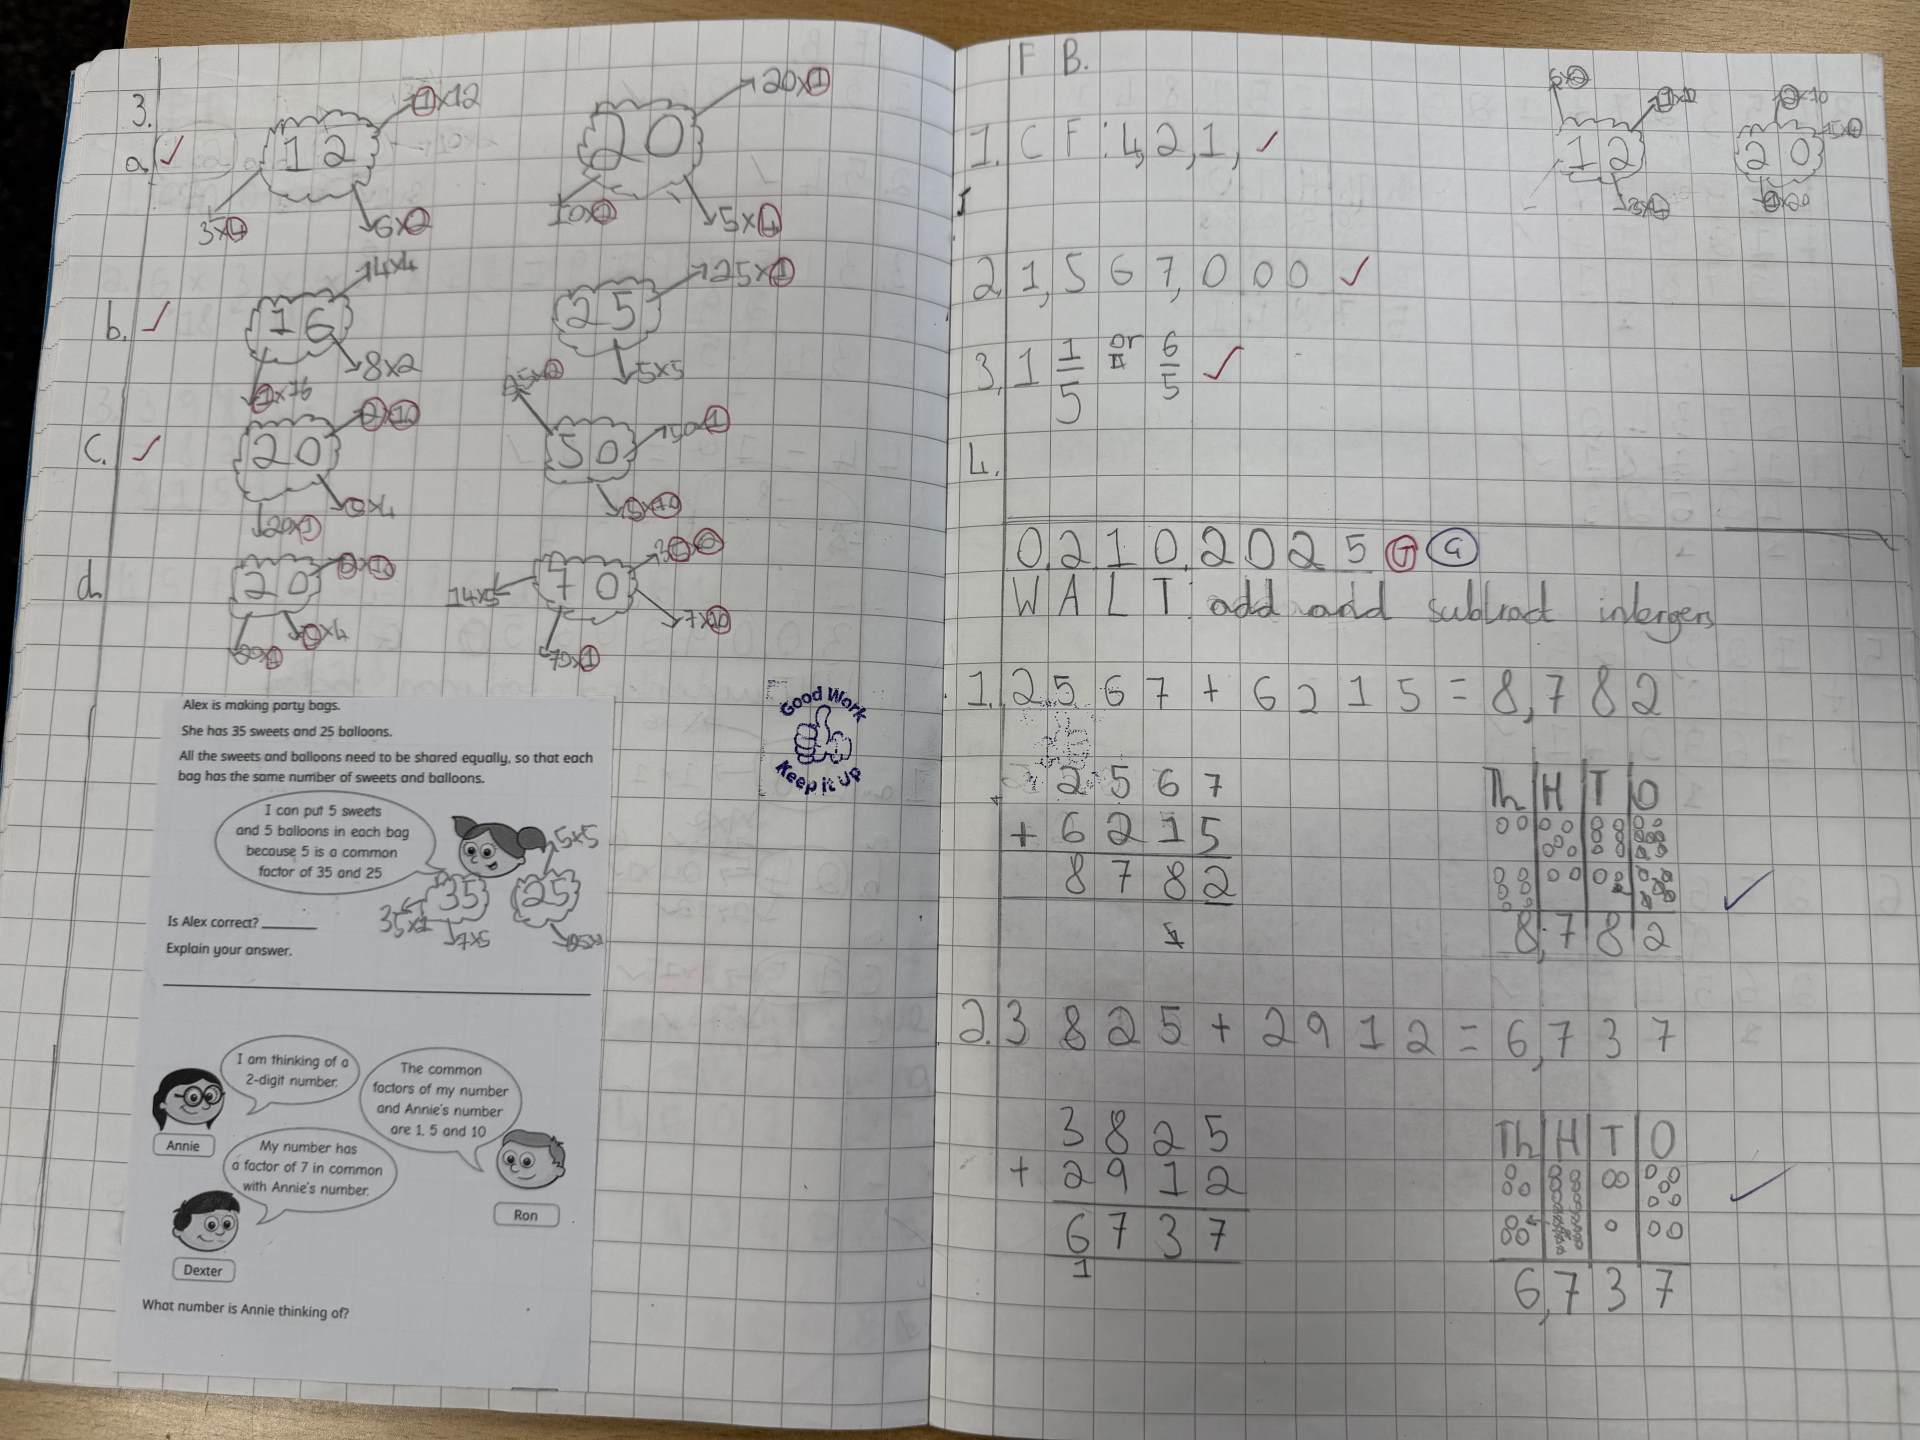 3.
a. ✓ 12 1×12 3×4 6×2
20 20×1 10×2 5×4
b. ✓ 16 4×4 8×2 1×16
25 25×1 5×5
c. ✓ 20 2×10 20×1 5×4
50 50×1 5×10
d. 20 2×10 20×1 5×4
70 14×5 7×10 70×1
Alex is making party bags.
She has 35 sweets and 25 balloons.
All the sweets and balloons need to be shared equally, so that each
bag has the same number of sweets and balloons.
I can put 5 sweets
and 5 balloons in each bag
because 5 is a common
factor of 35 and 25
35 35×1 7×5
25 5×5 25×1
Is Alex correct? ______
Explain your answer.
I am thinking of a
2-digit number.
Annie
The common
factors of my number
and Annie's number
are 1, 5 and 10
Ron
My number has
a factor of 7 in common
with Annie's number.
Dexter
What number is Annie thinking of?
Good Work
Keep it Up
F B.
1. C F : 4, 2, 1, ✓
12 6×2 3×4
20 2×10 1×20
2, 1, 5 6 7, 0 0 0 ✓
3, 1 1/5 or 6/5 ✓
4.
02.10.2025 T G
WALT: add and subtract intergers
1. 2567 + 6215 = 8,782
2567
+ 6215
8782
1
Th H T O
8,782
✓
2. 3825 + 2912 = 6,737
3825
+ 2912
6737
1
Th H T O
6,737
✓